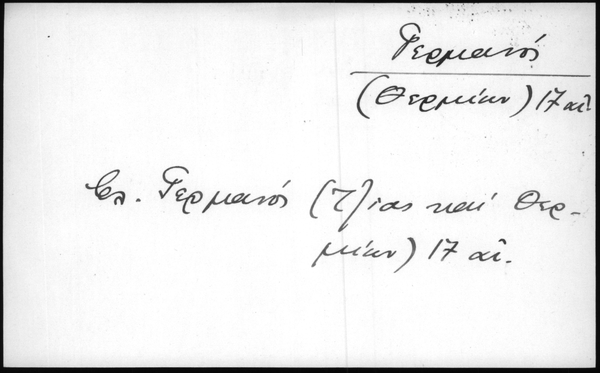 Γερμανός
(Θερμίων) 17 αἰ.
βλ. Γερμανός (Τζίας καί Θερ-
μίων) 17 αἰ.